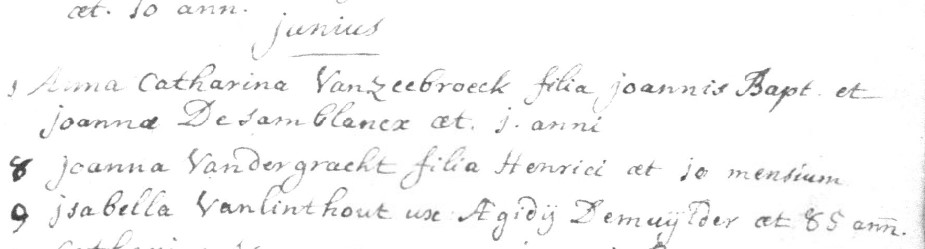 æt. 10 ann.
junius
1 Anna Catharina Vanzeebroeck filia joannis Bapt. et
joannæ Desamblancx æt. j. anni
8 joanna Vandergracht filia Henrici æt 10 mensium
9 jsabella Vanlinthout ux: Ægidij Demuÿlder æt 85 añ.